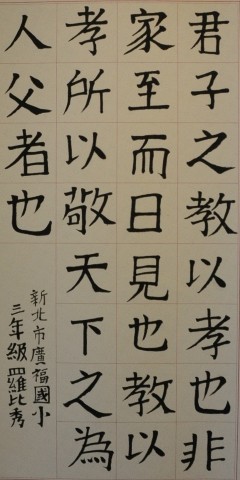 君子之教以孝也非
家至而日見也教以
孝所以敬天下之為
人父者也
新北市廣福國小
三年級羅比秀